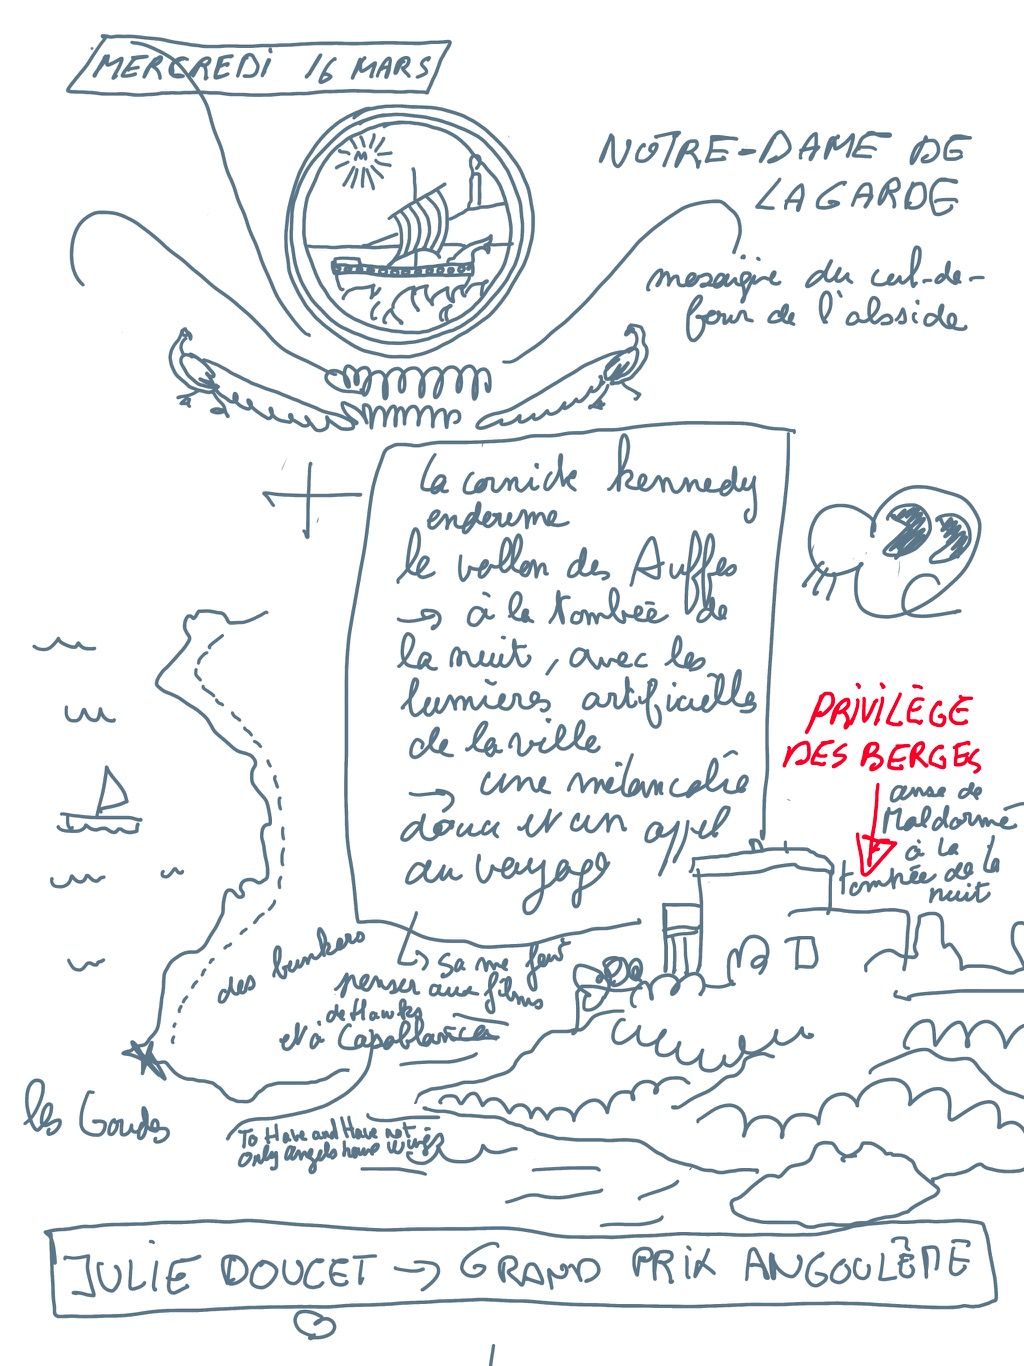 MERCREDI 16 MARS
M
NOTRE-DAME DE
LAGARDE
mosaïque du cul-de-
four de l'abside
la cornich Kennedy
endorme
le vallon des Auffes
→ à la tombée de
la nuit, avec les
lumières artificielles
de la ville
→ une mélancolie
douce et un appel
au voyage
PRIVILÈGE
DES BERGES
anse de
Maldormé
à la
tombée de la
nuit
des bunkers
↳ sa me fait
penser aux films
de Hawks
et à Casablanca
To Have and Have not
Only angels have wings
les Goudes
JULIE DOUCET → GRAND PRIX ANGOULÊME